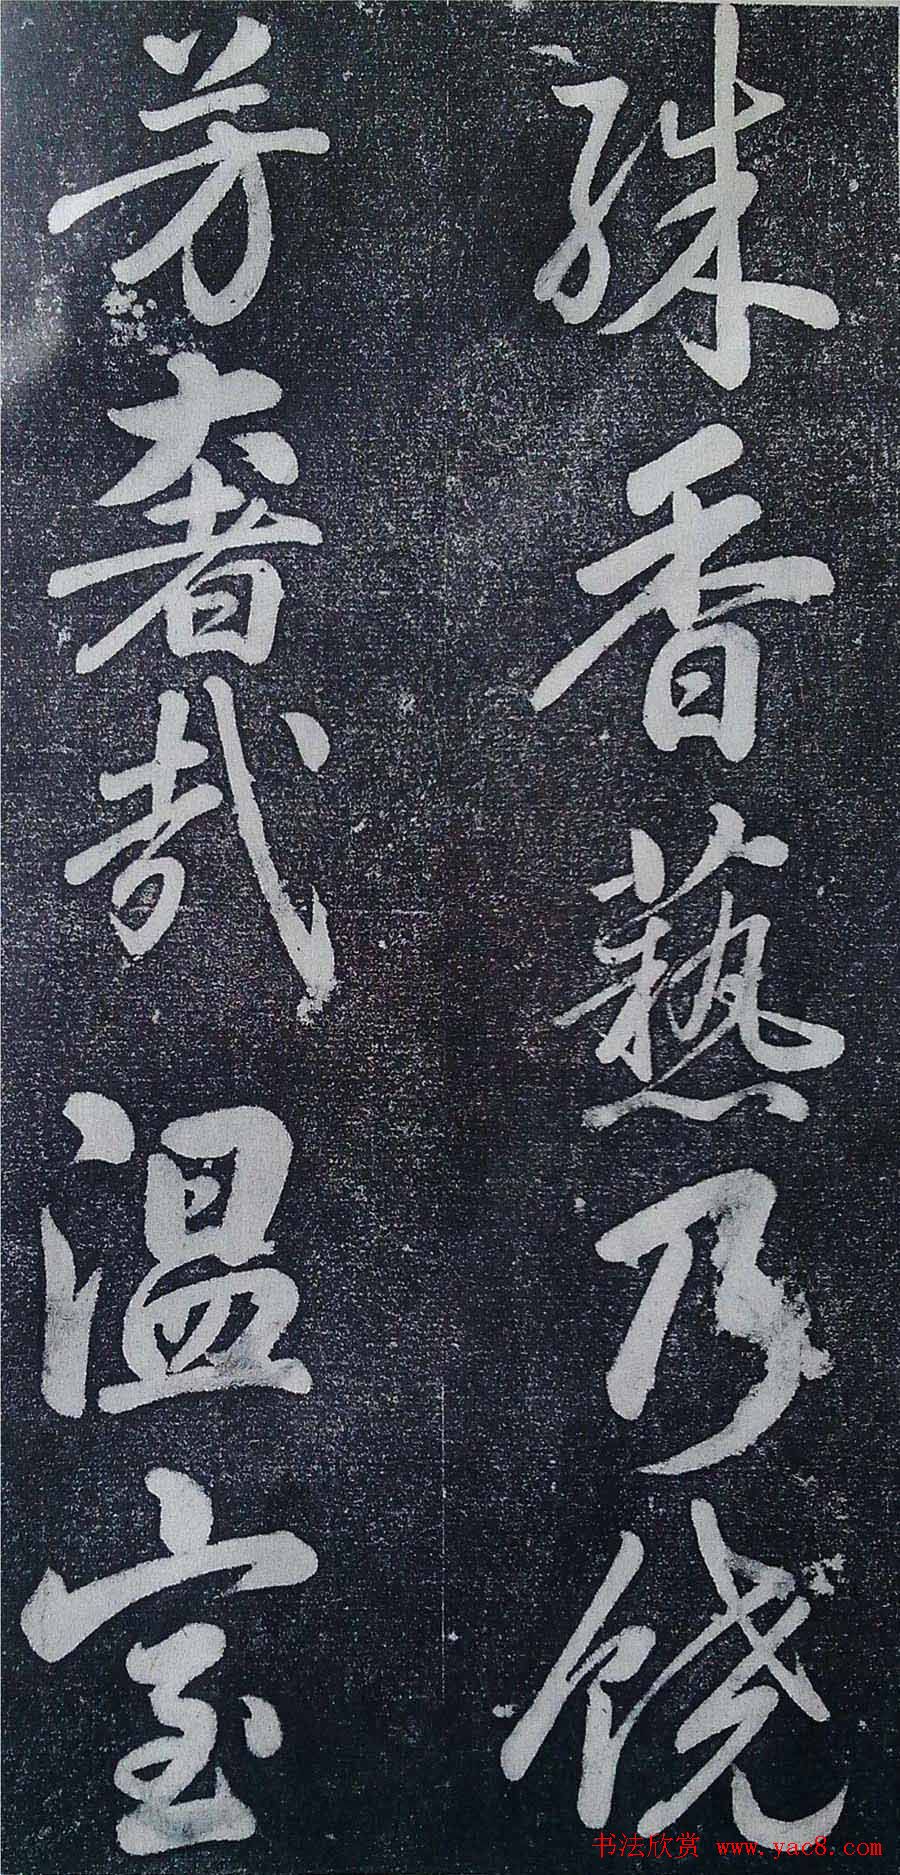 殊香藝乃饶
芳奢哉温室
书法欣赏 www.yac8.com